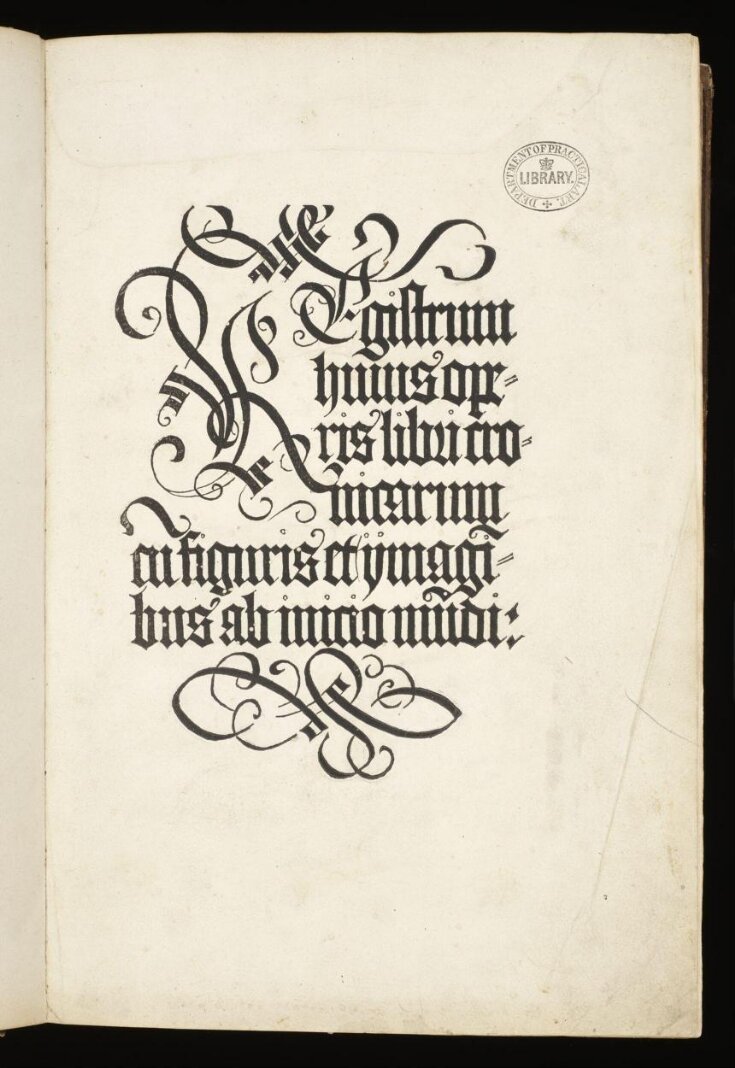 DEPARTMENT OF PRACTICAL ART.
LIBRARY.
REgistrum
huius ope-
ris libri cro-
nicarum
cū figuris et ÿmagi-
bus ab inicio mūdi: